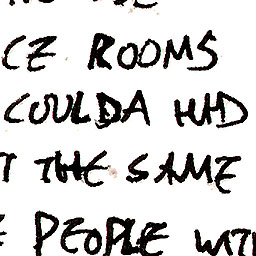 CE ROOMS
COULDA HAD
T THE SAME
E PEOPLE WIT